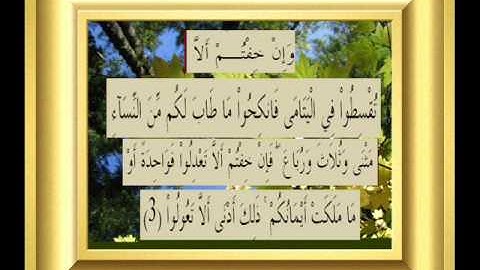 وَإِنْ خِفْتُـــمْ أَلاَّ
تُقْسِطُواْ فِي الْيَتَامَى فَانكِحُواْ مَا طَابَ لَكُم مِّنَ النِّسَآءِ
مَثْنَى وَثُلاَثَ وَرُبَاعَ ۖ فَإِنْ خِفْتُمْ أَلاَّ تَعْدِلُواْ فَوَاحِدَةً أَوْ
مَا مَلَكَتْ أَيْمَانُكُمْ ۚ ذَلِكَ أَدْنَى أَلاَّ تَعُولُواْ (3)